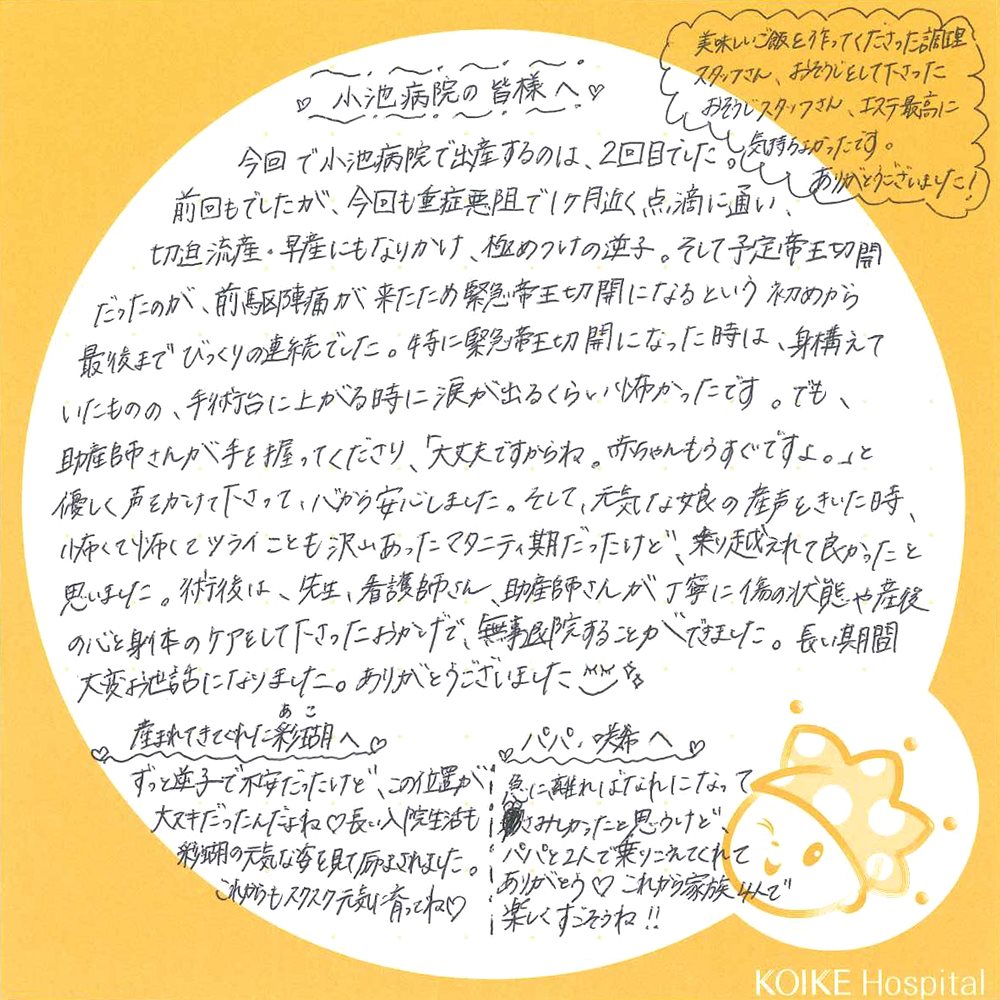 美味しいご飯を作ってくださった調理
スタッフさん、おそうじをして下さった
おそうじスタッフさん、エステ最高に
気持ちよかったです。
ありがとうございました!
♡ 小池病院の皆様へ ♡
今回で小池病院で出産するのは、2回目でした。
前回もでしたが、今回も重症悪阻で1ヶ月近く点滴に通い、
切迫流産・早産にもなりかけ、極めつけの逆子。そして予定帝王切開
だったのが、前駆陣痛が来たため緊急帝王切開になるという初めから
最後までびっくりの連続でした。特に緊急帝王切開になった時は、身構えて
いたものの、手術台に上がる時に涙が出るくらい怖かったです。でも、
助産師さんが手を握ってくださり、「大丈夫ですからね。赤ちゃんもうすぐですよ。」と
優しく声をかけて下さって、心から安心しました。そして、元気な娘の産声をきいた時、
怖くて怖くてツライことも沢山あったマタニティ期だったけど、乗り越えれて良かったと
思いました。術後は、先生、看護師さん、助産師さんが丁寧に傷の状態や産後
の心と身体のケアをして下さったおかげで、無事退院することができました。長い期間
大変お世話になりました。ありがとうございました
産まれてきてくれた彩瑚へ♡
あこ
ずっと逆子で不安だったけど、この位置が
大スキだったんだよね♡長い入院生活も
彩瑚の元気な姿を見て励まされました。
これからもスクスク元気に育ってね♡
♡パパ・咲希へ♡
急に離ればなれになって
さみしかったと思うけど、
パパと2人で乗りこえてくれて
ありがとう♡これから家族4人で
楽しくすごそうね!!
KOIKE Hospital